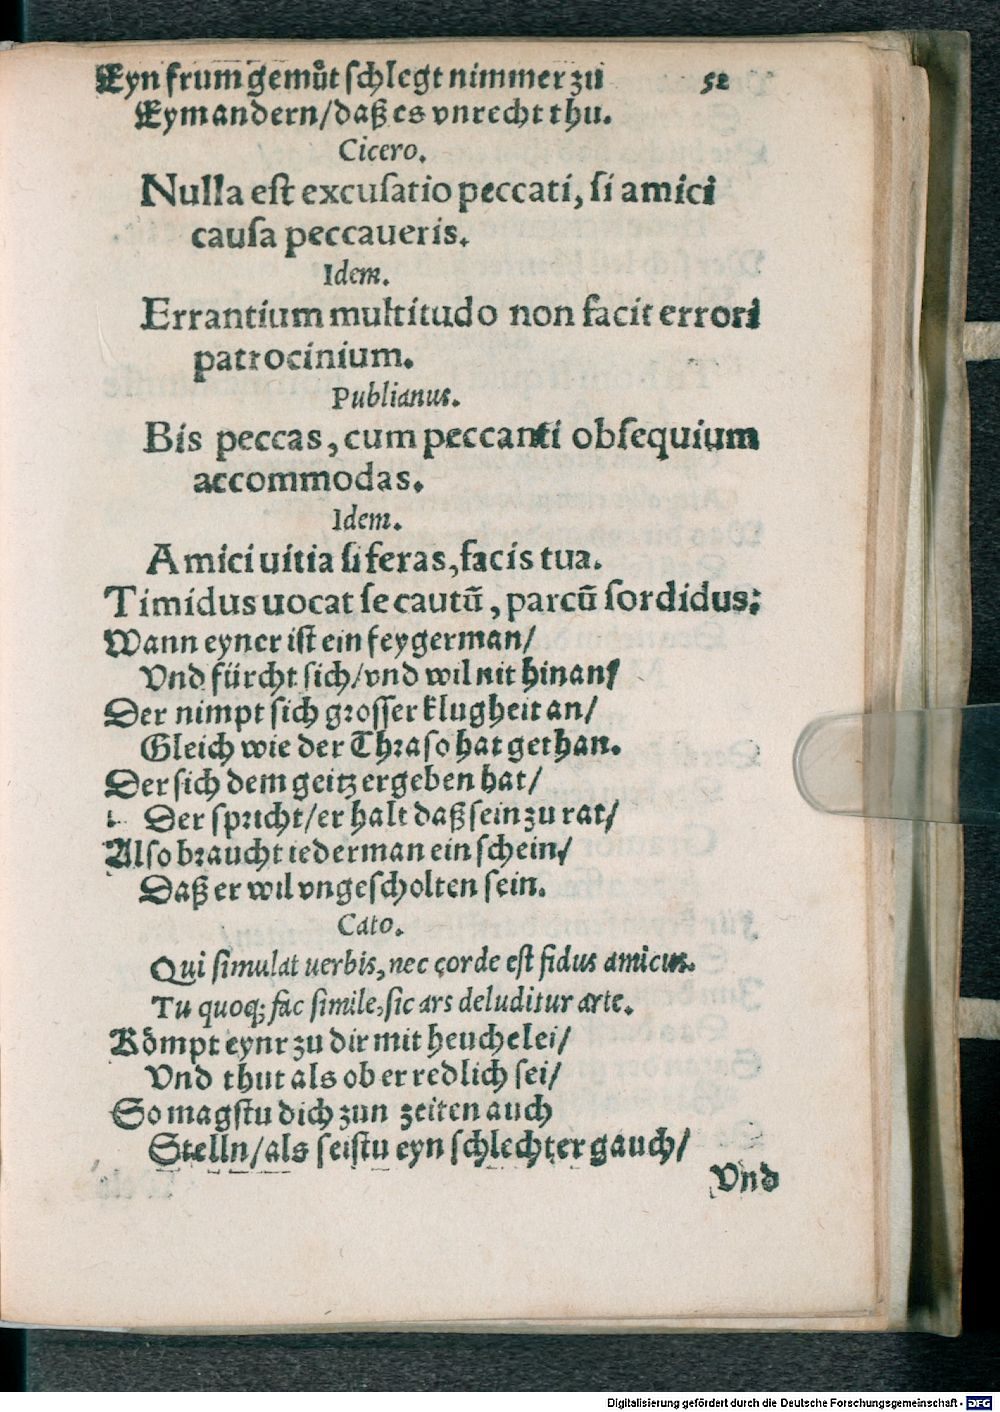 Eyn frum gemuͦt schlegt nimmer zu 52
Eym andern/daß es vnrecht thu.
Cicero.
Nulla est excusatio peccati, si amici
causa peccaueris.
Idem.
Errantium multitudo non facit errori
patrocinium.
Publianus.
Bis peccas, cum peccanti obsequium
accommodas.
Idem.
Amici uitia si feras, facis tua.
Timidus uocat se cautū, parcū sordidus:
Wann eyner ist ein feygerman/
Vnd fürcht sich/vnd wil nit hinan/
Der nimpt sich grosser klugheit an/
Gleich wie der Thraso hat gethan.
Der sich dem geitz ergeben hat/
Der spricht/er halt daß sein zu rat/
Also braucht iederman ein schein/
Daß er wil vngescholten sein.
Cato.
Qui simulat uerbis, nec corde est fidus amicus.
Tu quoq; fac simile, sic ars deluditur arte.
Kömpt eynr zu dir mit heuchelei/
Vnd thut als ob er redlich sei/
So magstu dich zun zeiten auch
Stelln/als seistu eyn schlechter gauch/
Vnd
Digitalisierung gefördert durch die Deutsche Forschungsgemeinschaft - DFG